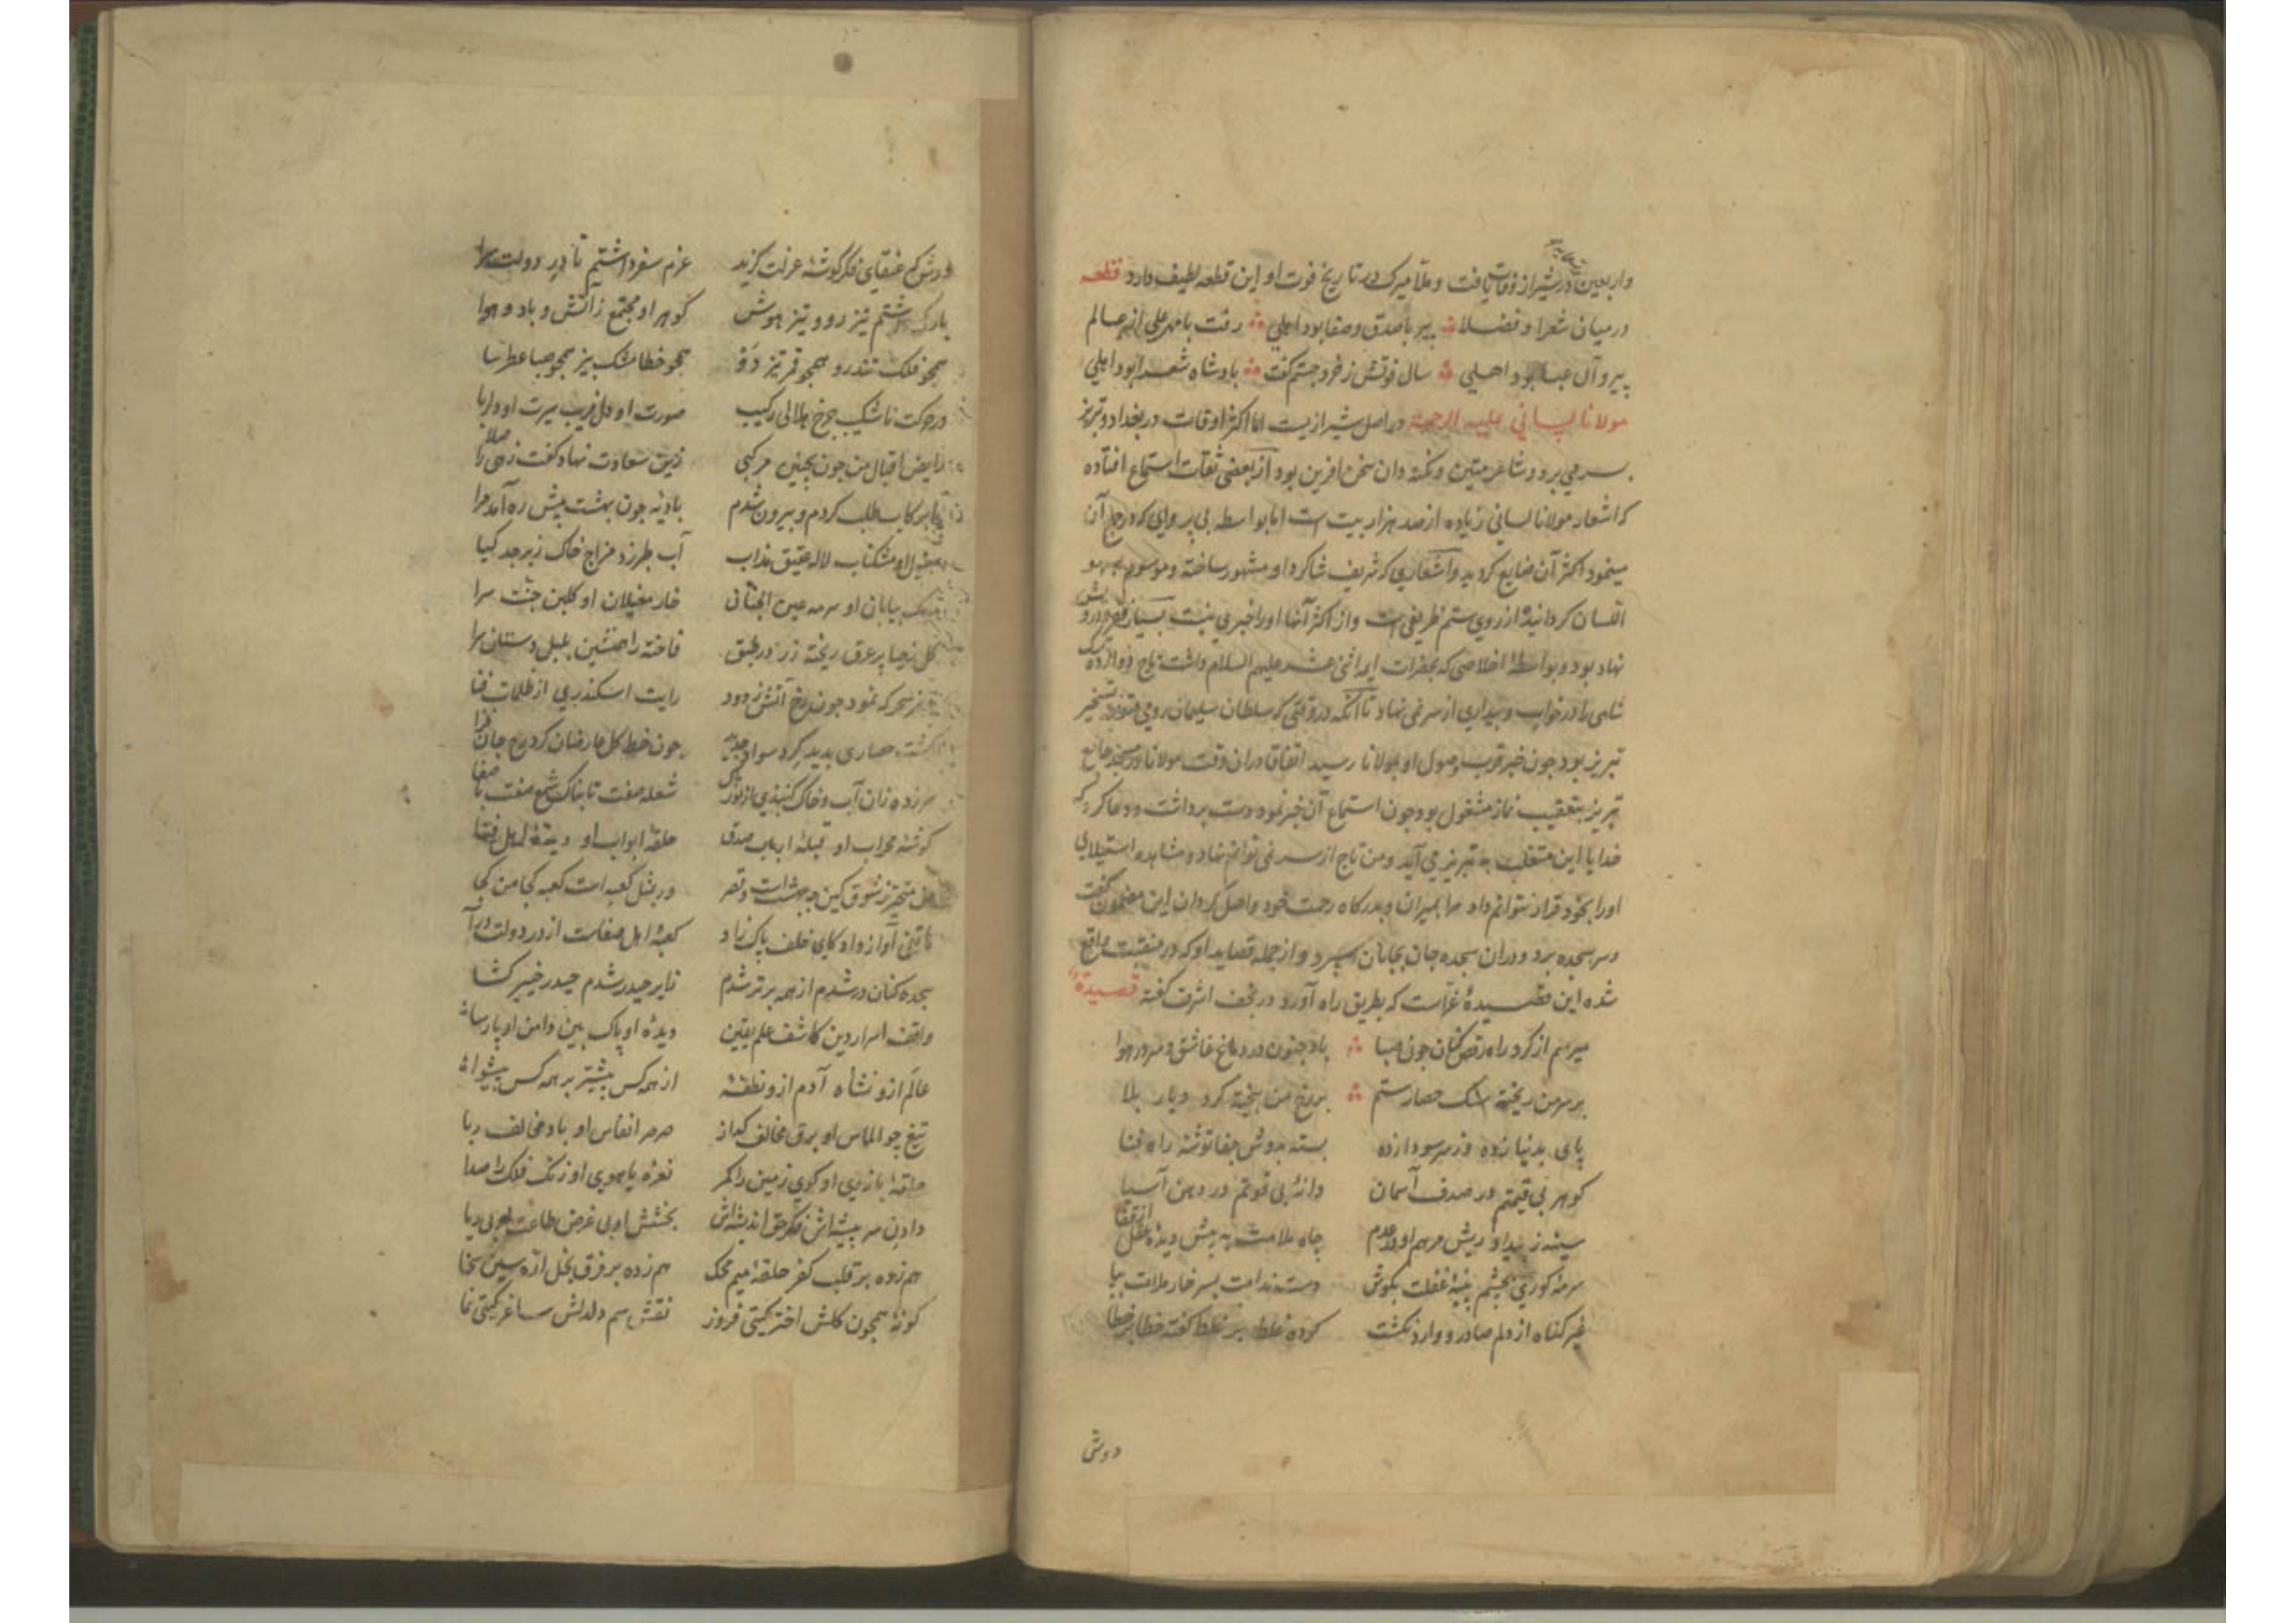 واربعین در شیراز وفات یافت و ملا میرک در تاریخ فوت او این قطعه لطیف دارد قطعه
در میان شعرا و فضلا پیر با صدق و صفا بود اهلی رفت با مهر علی از عالم
پیرو آل عبا بود اهلی سال فوتش ز خرد جستم گفت بادشاه شعرا بود اهلی
مولانا لسانی علیه الرحمة در اصل شیرازیست اما اکثر اوقات در بغداد و تبریز
بسر می برد و شاعر متین و نکته دان سخن آفرین بود از بعضی ثقات استماع افتاده
که اشعار مولانا لسانی زیاده از صد هزار بیت است اما بواسطه بی پروایی که در جمع آن
مینمود اکثر آن ضایع کردید و اشعاری که شریف شاکرد او مشهور ساخته و موسوم به سهو
اللسان کردانیده از روی ستم ظریفی است و از اکثر آنها او را خبری نیست بسیار درویش
نهاد بود و بواسطه اخلاصی که بحضرات ایمه اثنی عشر علیهم السلام داشت تاج دوازده ترک
شاهی را در خواب و بیداری از سر نمی نهاد تا آنکه در وقتی که سلطان سلیمان رومی متوجه تسخیر
تبریز بود چون خبر قرب وصول او بمولانا رسید اتفاقا در آن وقت مولانا در مسجد جامع
تبریز بتعقیب نماز مشغول بود چون استماع آن خبر نمود دست برداشت و دعا کرد که
خدایا این متغلب به تبریز می آید و من تاج از سر نمی توانم نهاد و مشاهده استیلای
او را بخود قرار نتوانم داد مرا بمیران و بدرکاه رحمت خود واصل کردان این مضمون گفت
و سر بسجده برد و در آن سجده جان بجانان سپرد و از جمله قصاید او که در منقبت واقع
شده این قصیدهٔ غراست که بطریق راه آورد در نجف اشرف گفته قصیده
میرسم از کرد راه رقص کنان چون صبا باد جنون در دماغ عاشق و سر در هوا
بر سر من ریخته سنک حصار ستم بر رخ من بیخته کرد دیار بلا
پای بدنیا زده وز سر سودا زده بسته بدوش جفا توشه راه فنا
کوهر بی قیمتم در صدف آسمان دانهٔ بی قوتم در دهن آسیا
سینه ز بیداد ریش مرهم او چاه ملامت به پیش دیدهٔ عقل از قفا
سرمه کوری بچشم پنبه غفلت بکوش دست ندامت بسر خار ملامت بپا
غیر کناه از دلم صادر و وارد نکشت کرده غلط بر غلط گفته خطا بر خطا
دوش
دوش که عنقای فکر گوشهٔ عزلت گزید عزم سفر داشتم تا در دولت سرا
بارکی داشتم تیز رو و تیز هوش کوهر او مجتمع ز آتش و باد و هوا
همچو فلک تندرو همچو قمر تیز دو همچو خطا مشک بیز همچو صبا عطرسا
در حرکت ناشکیب چرخ هلالی رکیب صورت او دلفریب سیرت او دلربا
رایض اقبال من چون بچنین مرکبی زین سعادت نهاد کفت زهی را صلا
پا برکاب طلب کردم و بیرون شدم بادیه چون بهشت پیش ره آمد مرا
او مشکناب لاله عقیق مذاب آب طرزد مزاج خاک زبرجد کیا
بیابان او سرمه عین الجنان خار مغیلان او کلبن جنت سرا
کل ز حیا پر عرق ریخته زر در طبق فاخته را همنشین بلبل دستان سرا
سحر که نمود چون رخ آتش ز دود رایت اسکندری از ظلمات فنا
کشت حصاری پدید کرد سواد چون خط کل عارضان کرد رخ جان فزا
سر زده زان آب و خاک کنبدی از نور پاک شعله صفت تابناک شمع صفت با صفا
کوشه محراب او قبلهٔ ارباب صدق حلقهٔ ابواب او دیدهٔ اهل فنا
متحیر ز شوق کین چه بهشت است و قصر ور بمثل کعبه است کعبه کجا من کجا
هاتفی آواز داد کای خلف پاک زاد کعبهٔ اهل صفاست از در دولت درآ
سجده کنان در شدم از همه برتر شدم زایر حیدر شدم حیدر خیبر کشا
واقف اسرار دین کاشف علم یقین دیدهٔ او پاک بین دامن او پارسا
عالم ازو نشاه آدم ازو نطفه از همه کس پیشتر بر همه کس پیشوا
تیغ چو الماس او برق مخالف کداز صرصر انفاس او باد مخالف ربا
حلقهٔ بازوی او کوی زمین را کمر نعره یاهوی او زنک فلک را صدا
دادن سر پیشه اش فکر حق اندیشه اش بخشش او بی غرض طاعت او بی ریا
هم زده بر قلب کفر حلقهٔ میم محک هم زده بر فرق بخل ارهٔ سین سخا
کونهٔ همچون کلش اختر کیتی فروز نقش سم دلدلش ساغر کیتی نما